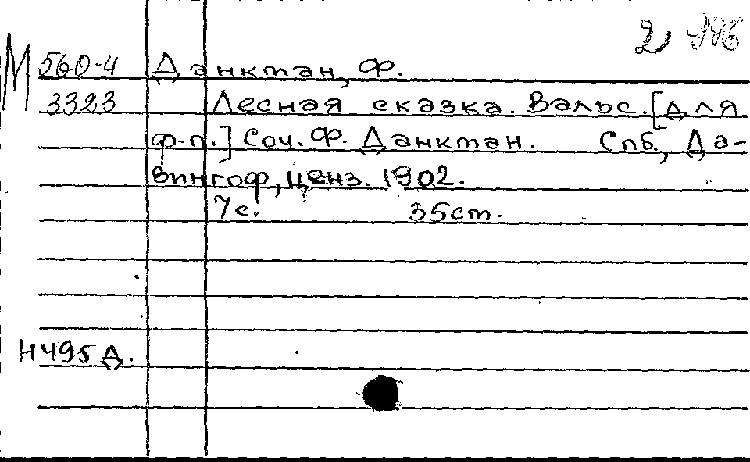 2
М 560-4 Данктан, Ф.
3323 Лесная сказка. Вальс. [Для
ф-п.] Соч. Ф. Данктан. Спб., Да-
вингоф, ценз. 1902.
7 с. 35 см.
Н495д.